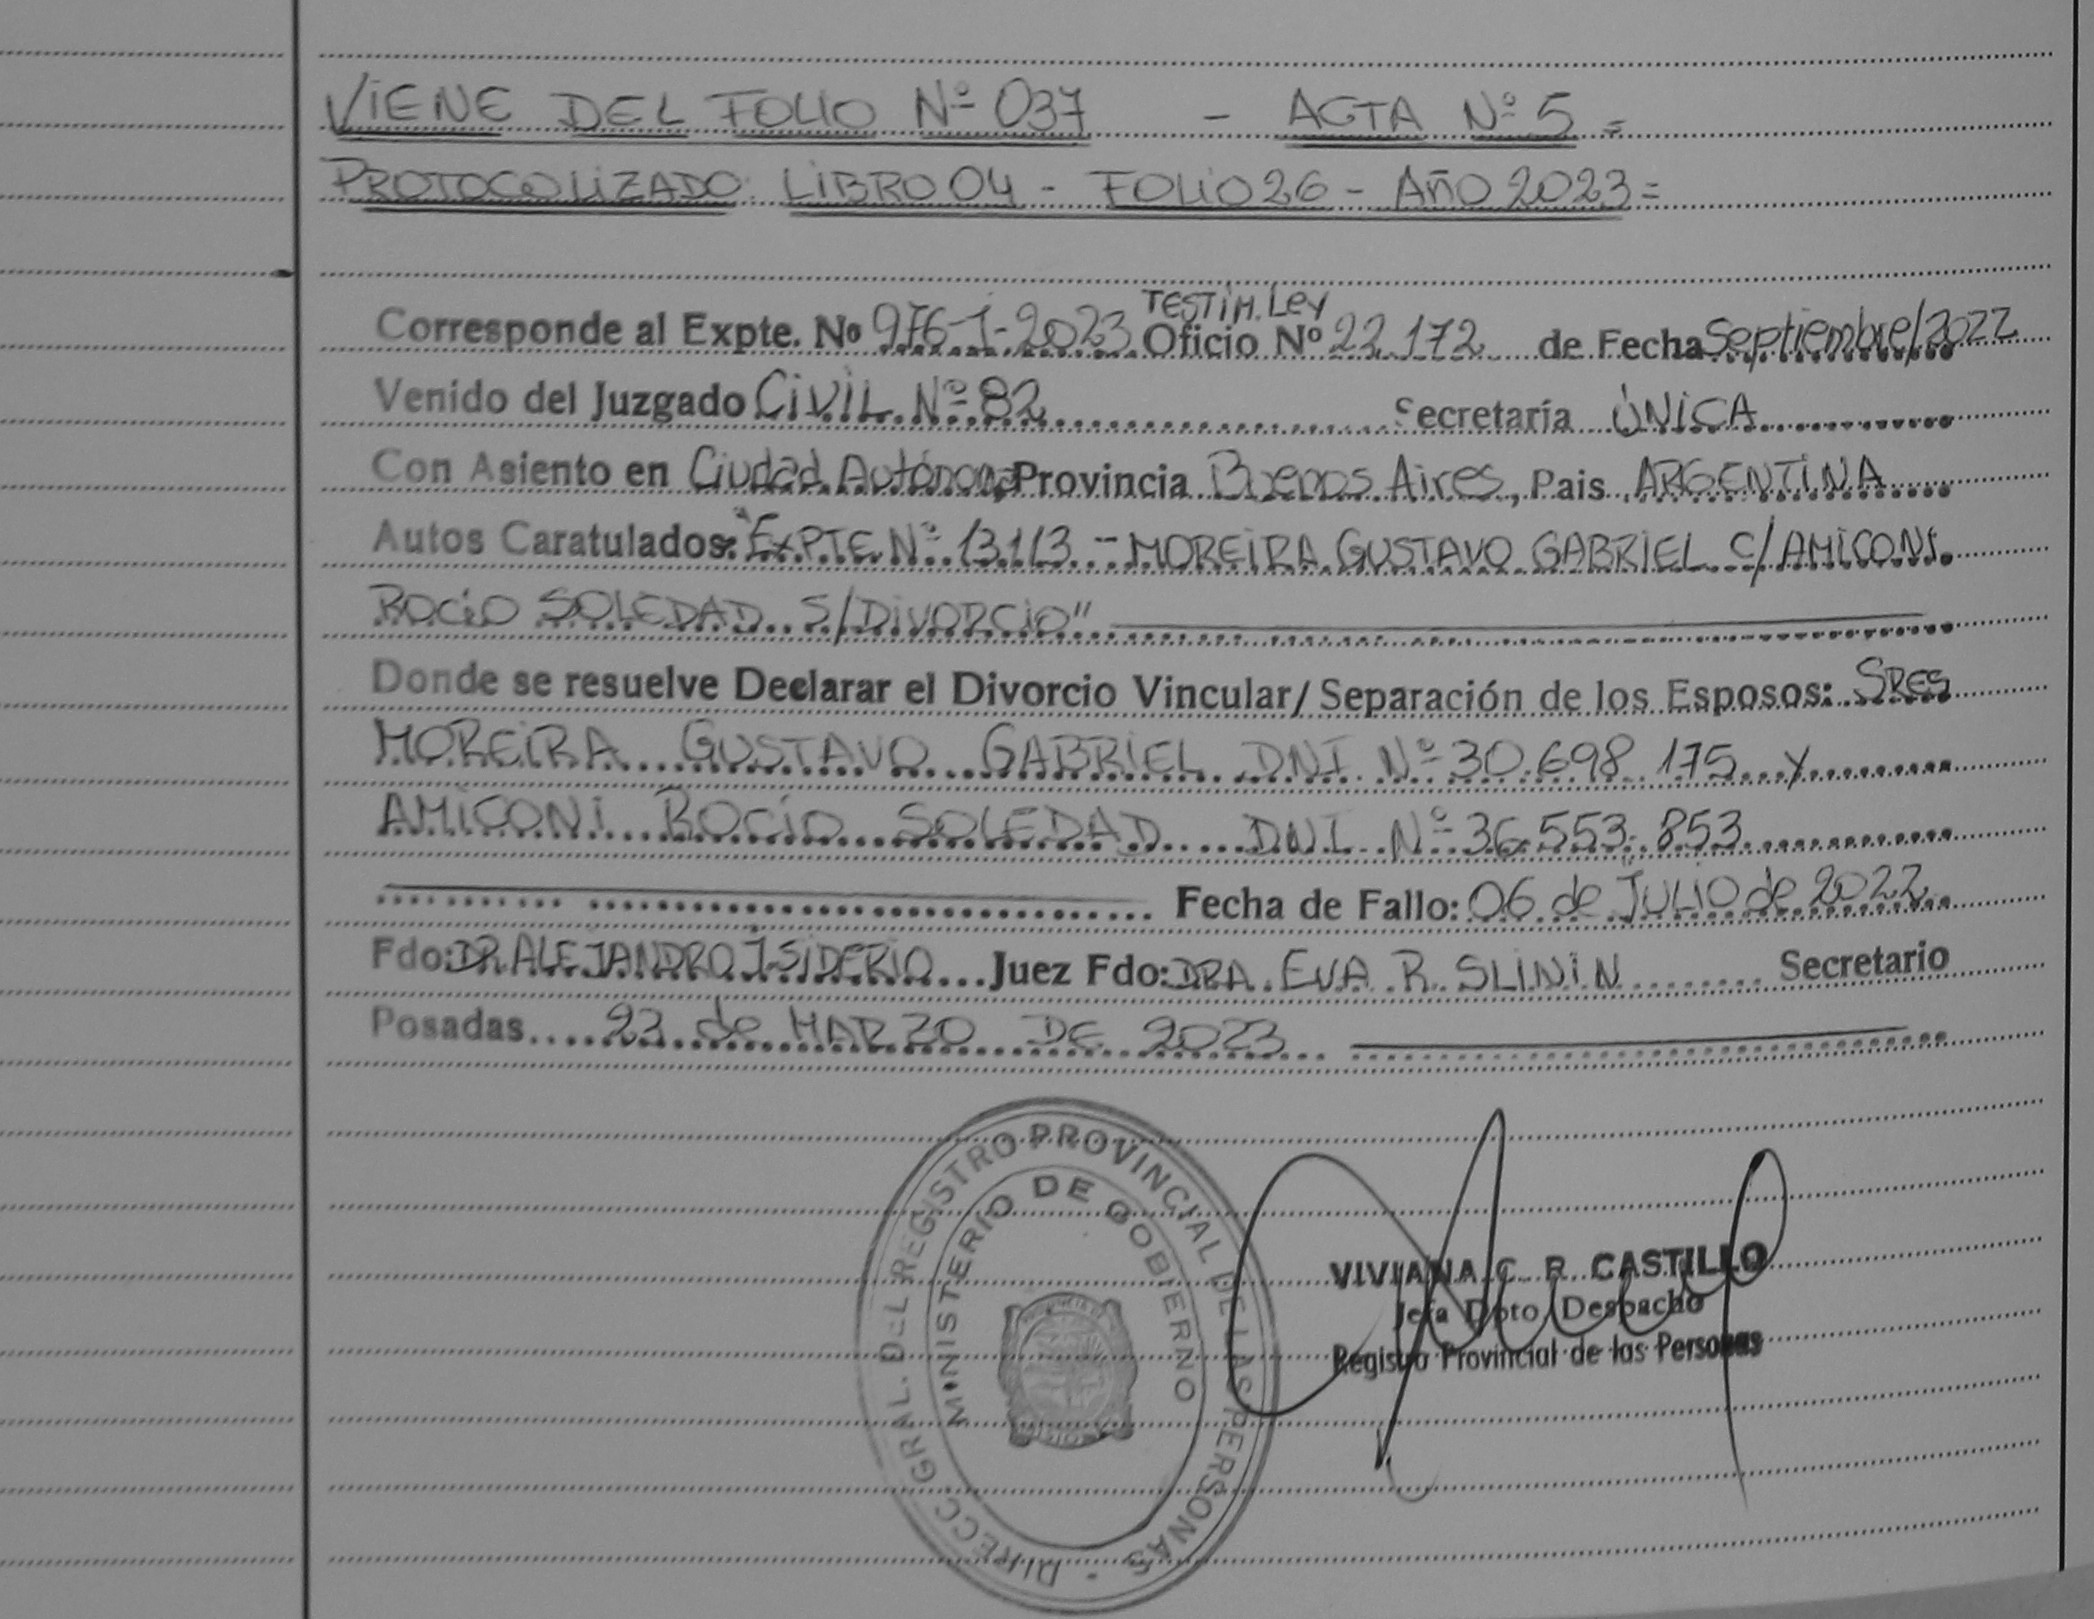 VIENE DEL FOLIO Nº 037 - ACTA Nº 5 =
PROTOCOLIZADO: LIBRO 04 - FOLIO 26 - AÑO 2023 =
TESTIM. LEY
Corresponde al Expte. Nº 976-J-2023 Oficio Nº 22.172 de Fecha Septiembre/2022
Venido del Juzgado CIVIL Nº 82 Secretaría ÚNICA
Con Asiento en Ciudad Autónoma Provincia Buenos Aires, Pais ARGENTINA
Autos Caratulados: "EXPTE Nº 13.113 - MOREIRA GUSTAVO GABRIEL C/ AMICONI
ROCIO SOLEDAD S/DIVORCIO"
Donde se resuelve Declarar el Divorcio Vincular/ Separación de los Esposos: SRES
MOREIRA GUSTAVO GABRIEL DNI Nº 30.698.175 y
AMICONI ROCÍO SOLEDAD DNI Nº 36.553.853
Fecha de Fallo: 06 de JULIO de 2022
Fdo: DR ALEJANDRO J SIDERIO Juez Fdo: DRA. EVA R. SLININ Secretario
Posadas 23 de MARZO DE 2023
DIRECC. GRAL. DEL REGISTRO PROVINCIAL DE LAS PERSONAS
MINISTERIO DE GOBIERNO
VIVIANA C. R. CASTILLO
Jefa Dpto Despacho
Registro Provincial de las Personas